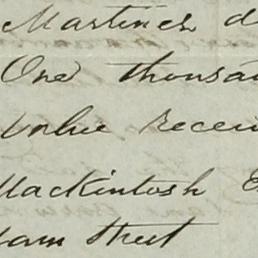 Martines d
One thousa
value Receiv
Mackintosh E
am Street